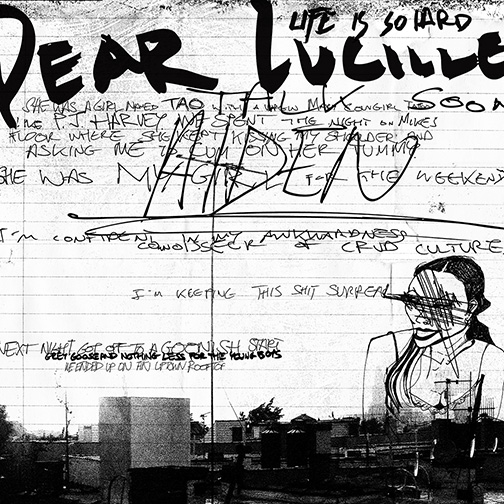 LIFE IS SO HARD
DEAR LUCILLE
TALK SOON
SHE WAS A GIRL NAMED TAO WITH A
P.J. HARVEY WE SPENT THE NIGHT ON MIKES
FLOOR WHERE SHE KEPT KISSING MY SHOULDER AND
ASKING ME TO CUM ON HER TUMMY
AIDEN
SHE WAS MY GIRL FOR THE WEEKEND
I'M CONFIDENT IN MY AWKWARDNESS
CONOISSEUR OF CRUD CULTURE
I'M KEEPING THIS SHIT SURREAL
NEXT NIGHT GOT OFF TO A GOONISH START
GREY GOOSE AND NOTHING LESS FOR THE YOUNG BOYS
WE ENDED UP ON AN UPTOWN ROOFTOP